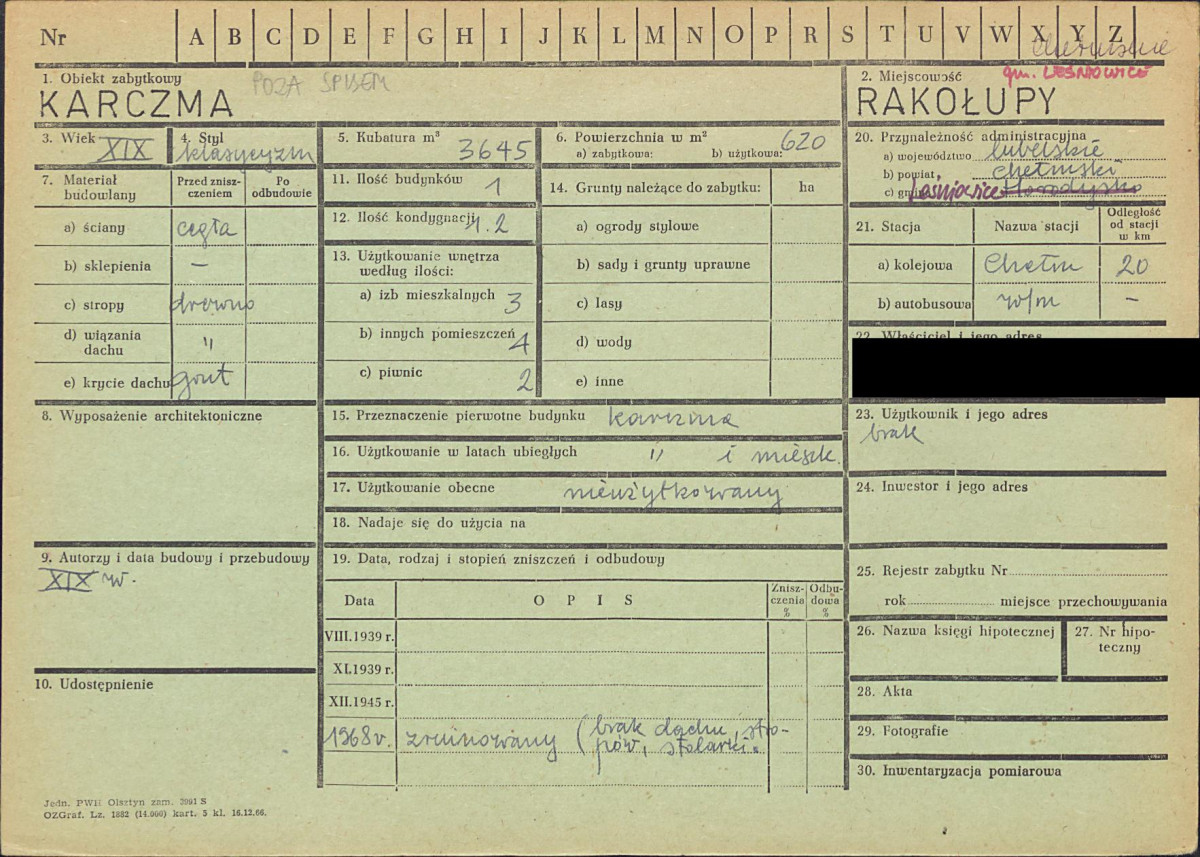 Nr A B C D E F G H I J K L M N O P R S T U V W X Y Z
chełmskie
1. Obiekt zabytkowy
POZA SPISEM
KARCZMA
2. Miejscowość
gm. LEŚNIOWICE
RAKOŁUPY
3. Wiek XIX
4. Styl
klasycyzm
5. Kubatura m³
3645
6. Powierzchnia w m²
a) zabytkowa: b) użytkowa: 620
20. Przynależność administracyjna
a) województwo lubelskie
b) powiat chełmski
c) gm. Leśniowice Horodysko
7. Materiał budowlany
Przed znisz-
czeniem
Po
odbudowie
a) ściany cegła
b) sklepienia –
c) stropy drewno
d) wiązania
dachu "
e) krycie dachu gont
11. Ilość budynków 1
12. Ilość kondygnacji 1.2
13. Użytkowanie wnętrza
według ilości:
a) izb mieszkalnych 3
b) innych pomieszczeń 4
c) piwnic 2
14. Grunty należące do zabytku: ha
a) ogrody stylowe
b) sady i grunty uprawne
c) lasy
d) wody
e) inne
21. Stacja Nazwa stacji
Odległość
od stacji
w km
a) kolejowa Chełm 20
b) autobusowa w/m –
22. Właściciel i jego adres
8. Wyposażenie architektoniczne
15. Przeznaczenie pierwotne budynku karczma
16. Użytkowanie w latach ubiegłych " i mieszk.
17. Użytkowanie obecne nieużytkowany
18. Nadaje się do użycia na
23. Użytkownik i jego adres
brak
24. Inwestor i jego adres
9. Autorzy i data budowy i przebudowy
XIX w.
19. Data, rodzaj i stopień zniszczeń i odbudowy
Data OPIS
Znisz-
czenia
%
Odbu-
dowa
%
VIII.1939 r.
XI.1939 r.
XII.1945 r.
1968 r. zrujnowany (brak dachu, stro-
pów, stolarki.
25. Rejestr zabytku Nr
rok miejsce przechowywania
26. Nazwa księgi hipotecznej
27. Nr hipo-
teczny
10. Udostępnienie
28. Akta
29. Fotografie
30. Inwentaryzacja pomiarowa
Jedn. PWH Olsztyn zam. 2991 S
OZGraf. Lz. 1882 (14.000) kart. 5 kl. 16.12.66.